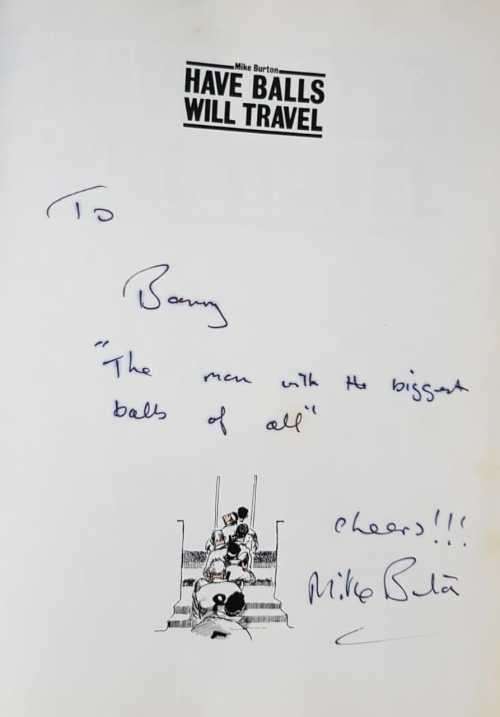 Mike Burton
HAVE BALLS
WILL TRAVEL
To
Barry
"The man with the biggest
balls of all"
Cheers!!!
Mike Burton